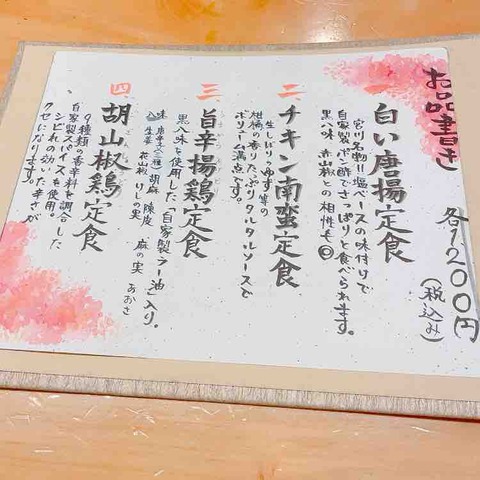 お品書き
各1,200円
(税込み)
白い唐揚定食
宮川名物!!塩ベースの味付けで
自家製ポン酢でさっぱりと食べられます。
黒八味、赤山椒との相性も◎
二
チキン南蛮定食
生しぼりゆず等の
柑橘の香りたっぷりタルタルソースで
ボリューム満点です。
三
旨辛揚鶏定食
黒八味を使用した「自家製ラー油」入り。
胡麻 陳皮 麻の実 あおさ
生姜 花山椒 けしの実
四
胡山椒鶏定食
9種類の香辛料を調合した
自家製スパイスを使用。
シビれの効いた辛さが
クセになります。